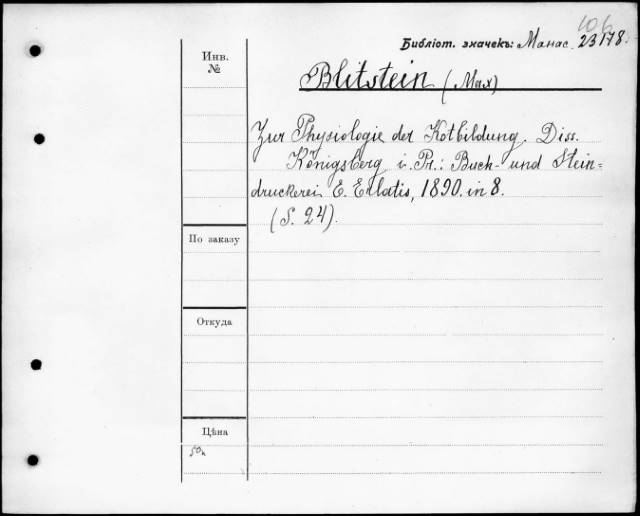 106
Библіот. значекъ: Манас. 23178.
Инв.
№
Blitstein (Max)
Zur Physiologie der Kotbildung. Diss.
Königsberg i. Pr.: Buch- und Stein=
druckerei E. Erlatis, 1890. in 8.
(S. 24).
По заказу
Откуда
Цѣна